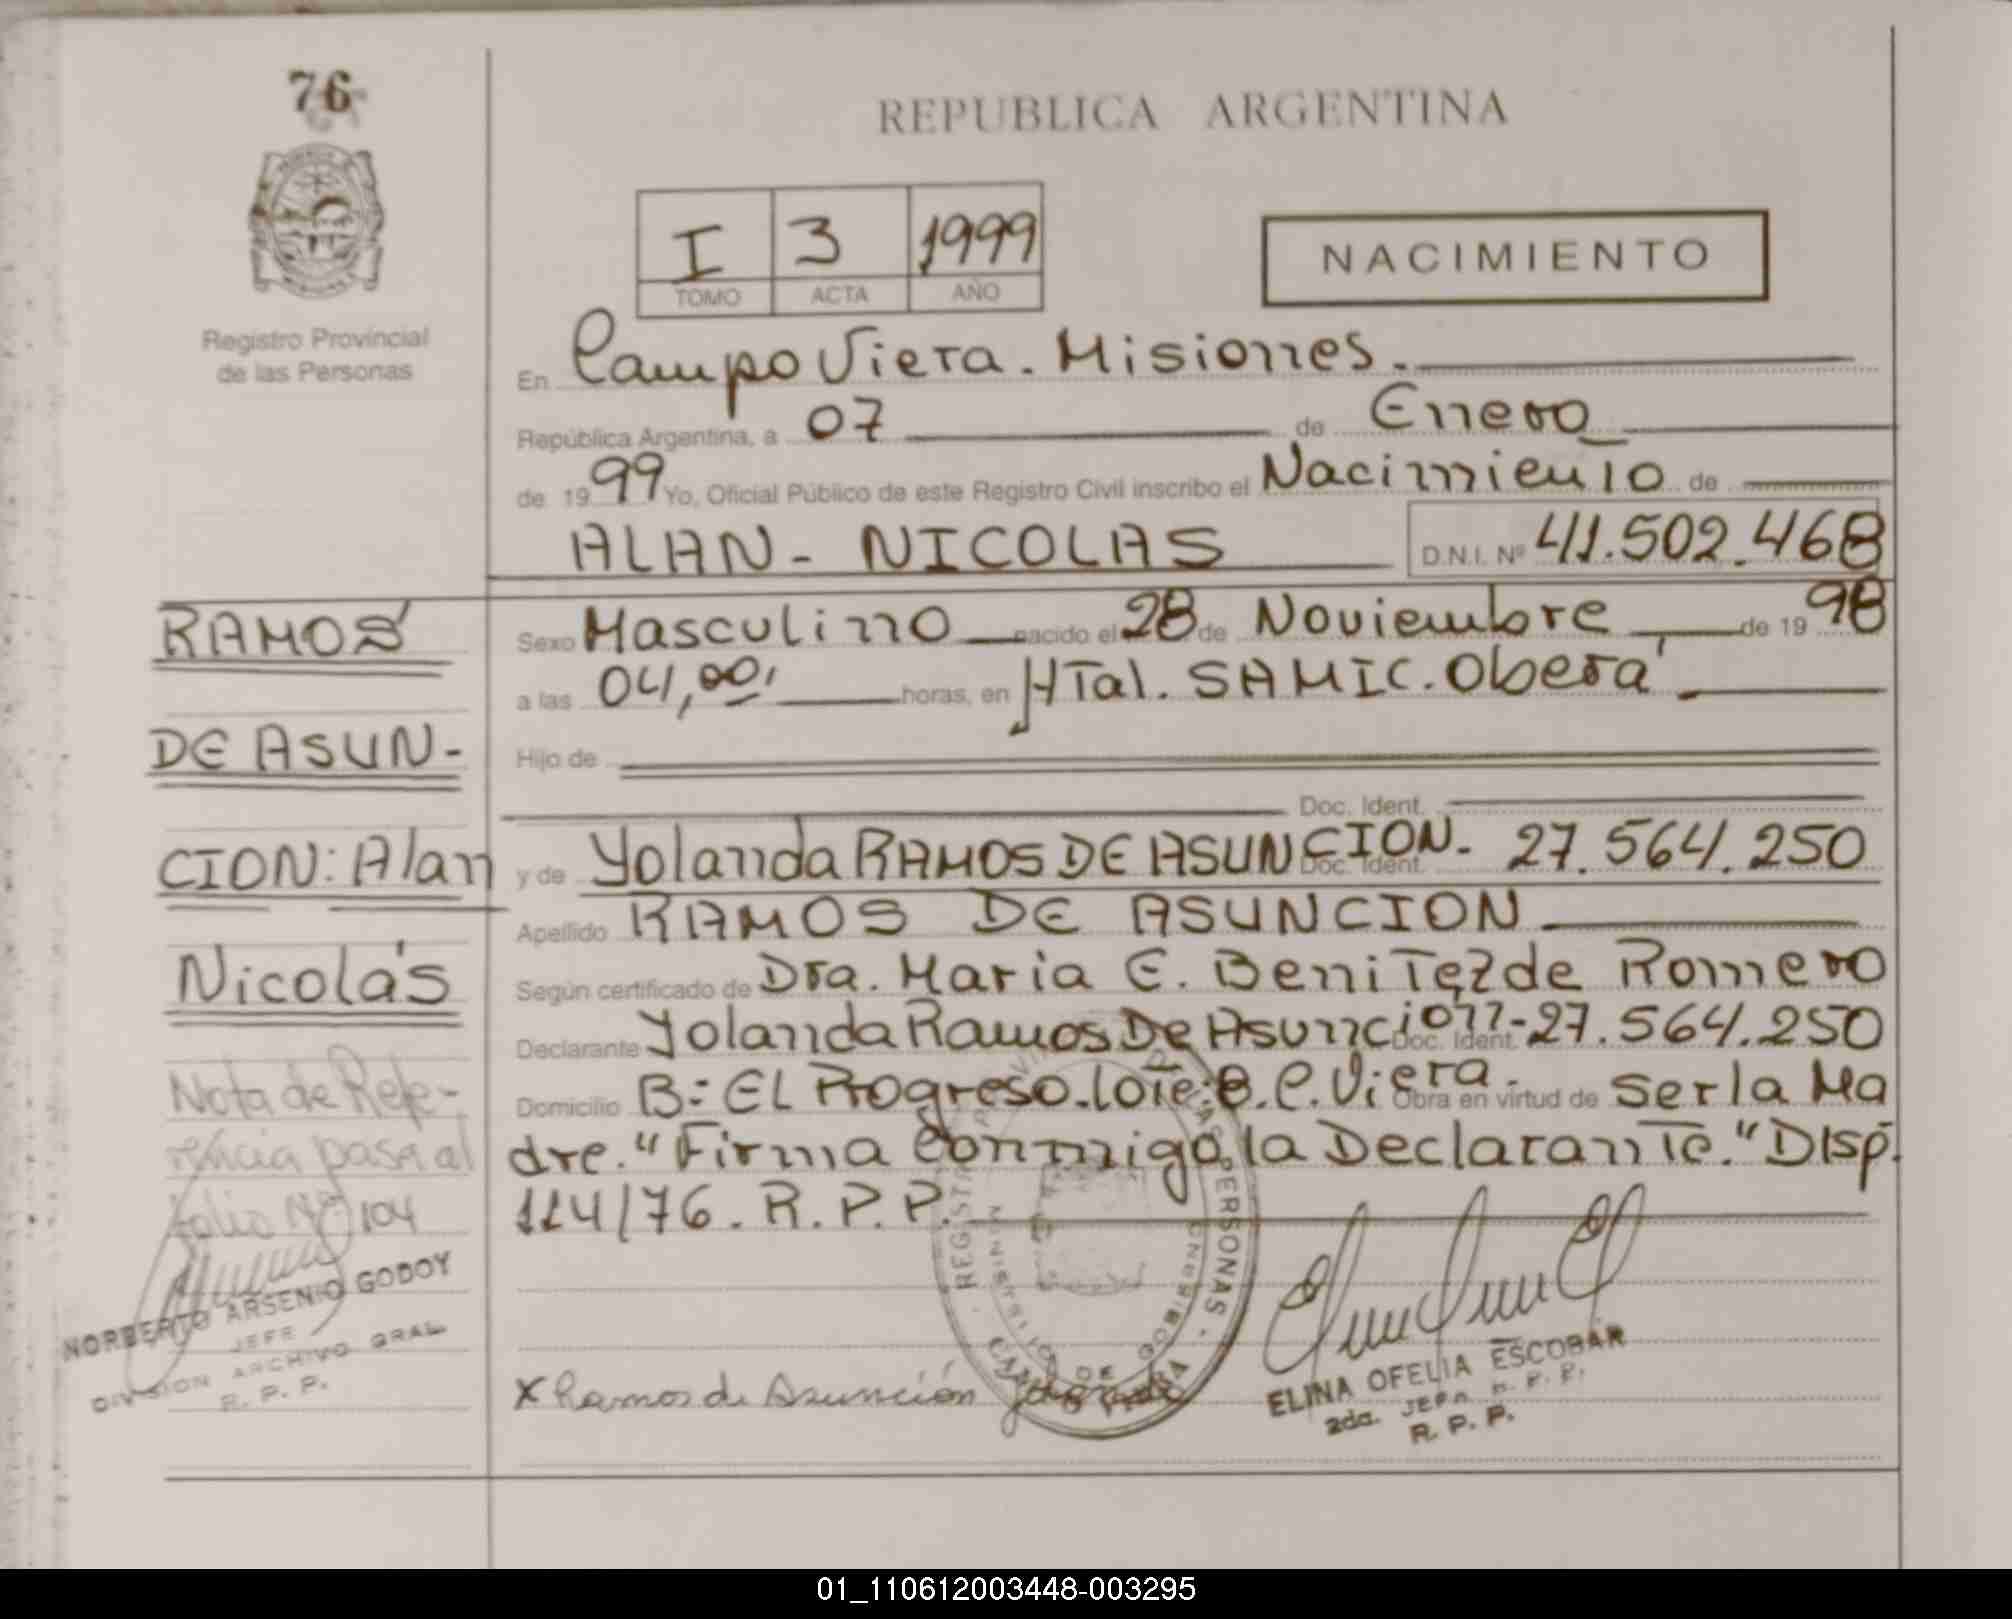 76
REPUBLICA ARGENTINA
I 3 1999
TOMO ACTA AÑO
NACIMIENTO
Registro Provincial
de las Personas
En Campo Viera. Misiones.
República Argentina, a 07 de Enero
de 1999 Yo, Oficial Público de este Registro Civil inscribo el Nacimiento de
ALAN - NICOLAS D.N.I. Nº 41.502.468
RAMOS
DE ASUN-
CION: Alan
Nicolás
Sexo Masculino nacido el 28 de Noviembre de 1998
a las 04,00, horas, en HTal. SAMIC. Oberá
Hijo de
Doc. Ident.
y de Yolanda RAMOS DE ASUNCION - Doc. Ident. 27.564.250
Apellido RAMOS DE ASUNCION
Según certificado de Dra. Maria E. Benitez de Romero
Declarante Yolanda Ramos De Asuncion - Doc. Ident. 27.564.250
Domicilio B: EL Progreso. lote: 8. C. Viera. Obra en virtud de ser la Ma
dre. "Firma Conmigo la Declarante." Disp.
114/76. R. P. P.
Nota de Refe-
rencia pasa al
folio Nº 104
NORBERTO ARSENIO GODOY
JEFE
DIVISION ARCHIVO GRAL
R. P. P.
x Ramos de Asunción
ELINA OFELIA ESCOBAR
2da. JEFA R. P. P.
R. P. P.
01_110612003448-003295